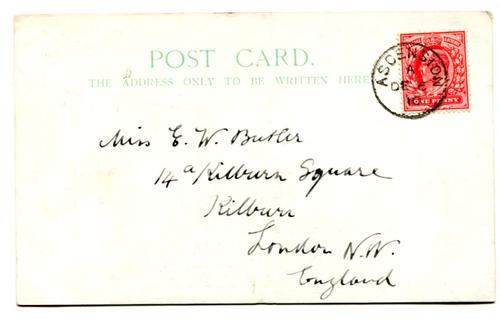 POST CARD.
THE ADDRESS ONLY TO BE WRITTEN HERE
ASCENSION
A
ONE PENNY
Miss E. W. Butler
14a Kilburn Square
Kilburn
London N.W.
England